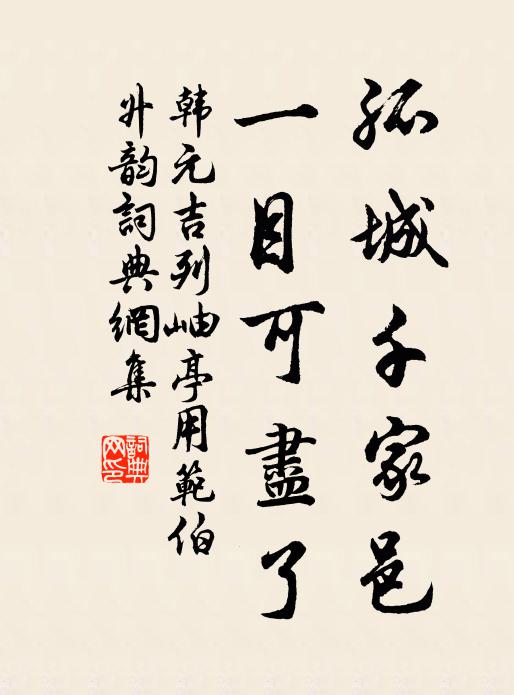 孤城千家邑
一目可盡了
韩元吉列岫亭用範伯
升韵詞典網集
詞典网印